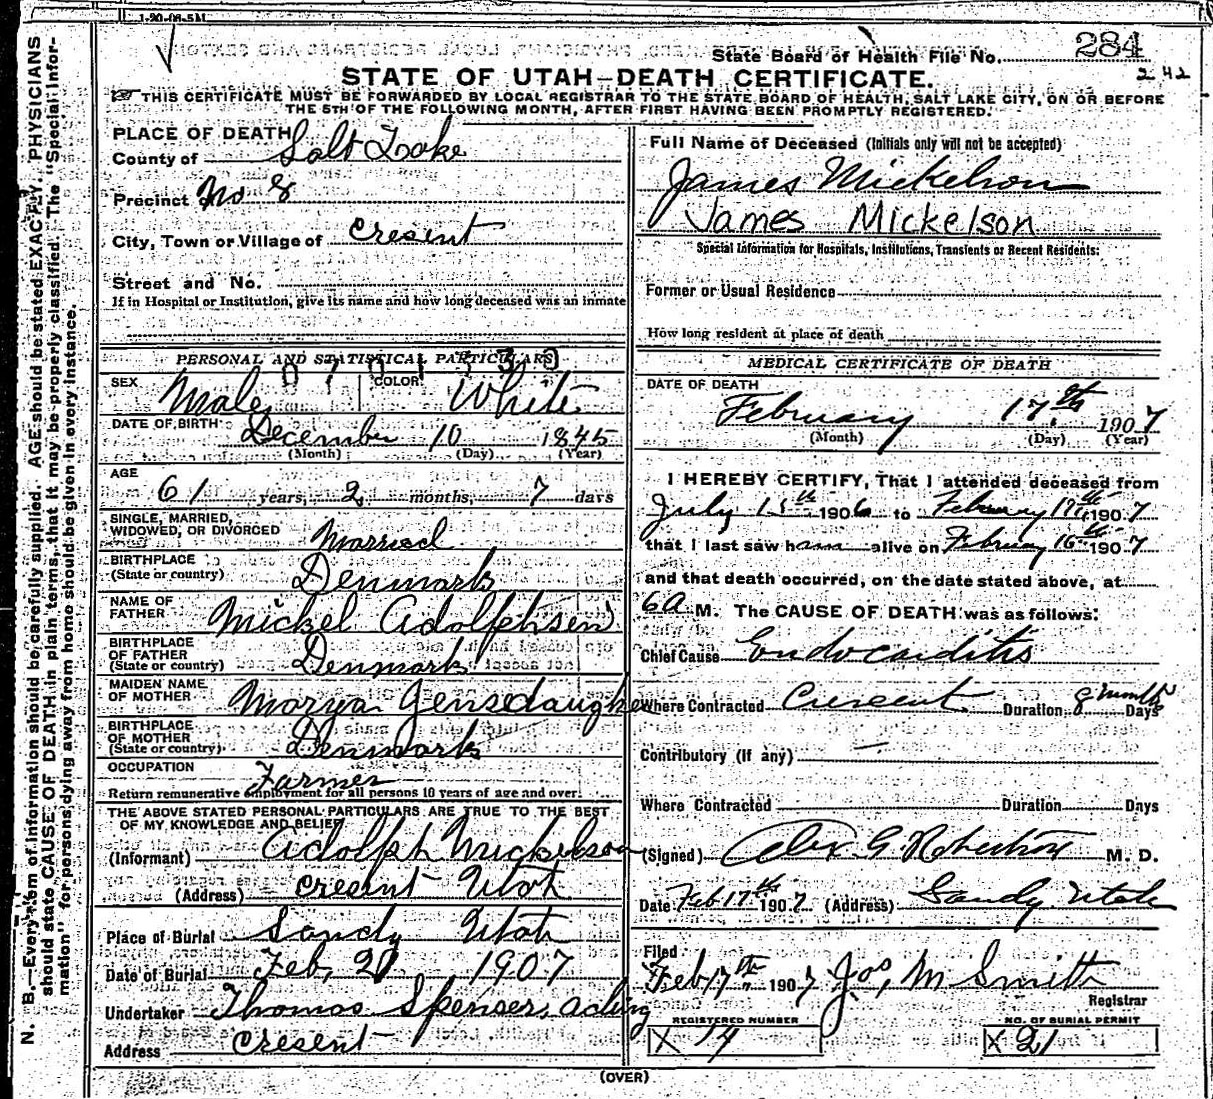 1-20-06-5M
State Board of Health File No. 284
242
STATE OF UTAH—DEATH CERTIFICATE.
THIS CERTIFICATE MUST BE FORWARDED BY LOCAL REGISTRAR TO THE STATE BOARD OF HEALTH, SALT LAKE CITY, ON OR BEFORE
THE 5TH OF THE FOLLOWING MONTH, AFTER FIRST HAVING BEEN PROMPTLY REGISTERED.
N. B.—Every item of information should be carefully supplied. AGE should be stated EXACTLY. PHYSICIANS
should state CAUSE OF DEATH in plain terms, that it may be properly classified. The "Special Infor-
mation" for persons dying away from home should be given in every instance.
PLACE OF DEATH
County of Salt Lake
Precinct No 8
City, Town or Village of Cresent
Street and No.
If in Hospital or Institution, give its name and how long deceased was an inmate
PERSONAL AND STATISTICAL PARTICULARS
SEX Male COLOR White
DATE OF BIRTH December 10 1845
(Month) (Day) (Year)
AGE
61 years, 2 months, 7 days
SINGLE, MARRIED,
WIDOWED, OR DIVORCED Married
BIRTHPLACE
(State or country) Denmark
NAME OF
FATHER Mickel Adolphsen
BIRTHPLACE
OF FATHER
(State or country) Denmark
MAIDEN NAME
OF MOTHER Marya Jensdaughter
BIRTHPLACE
OF MOTHER
(State or country) Denmark
OCCUPATION Farmer
Return remunerative employment for all persons 10 years of age and over.
THE ABOVE STATED PERSONAL PARTICULARS ARE TRUE TO THE BEST
OF MY KNOWLEDGE AND BELIEF
(Informant) Adolph Mickelson
(Address) Cresent Utah
Place of Burial Sandy Utah
Date of Burial Feb, 20, 1907
Undertaker Thomas Spenser, acting
Address Cresent
Full Name of Deceased (Initials only will not be accepted)
James Mickelson
James Mickelson
Special Information for Hospitals, Institutions, Transients or Recent Residents:
Former or Usual Residence
How long resident at place of death
MEDICAL CERTIFICATE OF DEATH
DATE OF DEATH
February 17th 1907
(Month) (Day) (Year)
I HEREBY CERTIFY, That I attended deceased from
July 15th 1906 to February 17th 1907
that I last saw him alive on February 16th 1907
and that death occurred, on the date stated above, at
6 A M. The CAUSE OF DEATH was as follows:
Chief Cause Endocarditis
Where Contracted Crescent Duration 8 months Days
Contributory (If any) —
Where Contracted Duration Days
(Signed) Alex G. Robertson M. D.
Date Feb 17th 1907 (Address) Sandy Utah
Filed
Feb 17th 1907 Jos, M Smith
Registrar
REGISTERED NUMBER
X 14
NO. OF BURIAL PERMIT
X 21
(OVER)